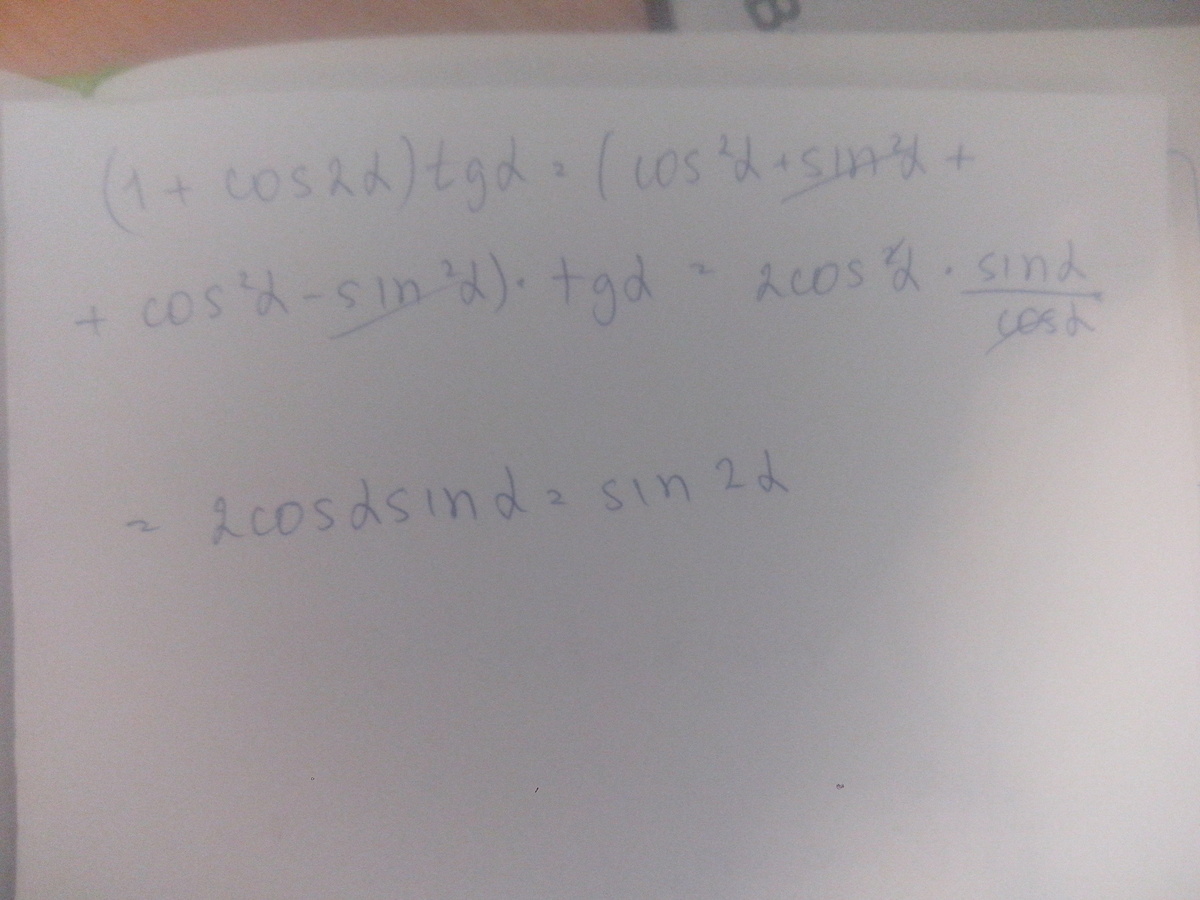 8
(1 + cos2α)tgα = (cos²α + sin²α +
+ cos²α - sin²α) · tgα = 2cos²α · sinα/cosα
= 2cosαsinα = sin2α